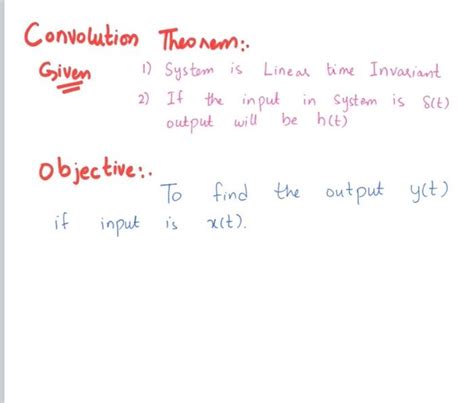 Convolution Theorem:.
Given 1) System is Linear time Invariant
2) If the input in system is δ(t)
output will be h(t)
Objective:.
To find the output y(t)
if input is x(t).